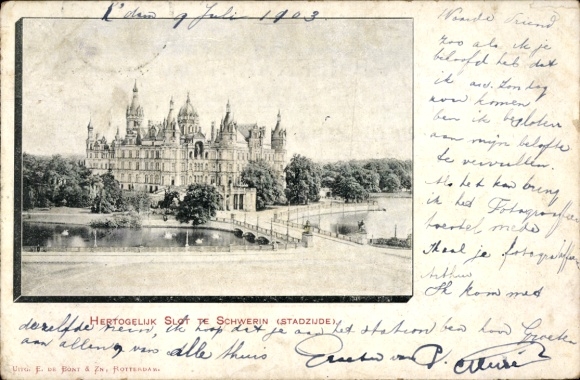 R'dam 9 Juli 1903
Waarde Vriend
Zoo als ik je
beloofd heb dat
ik a.s. Zondag
zou komen
ben ik besloten
aan mijn belofte
te vervullen.
Als het kan breng
ik het Fotografie
toestel mede
Arthur
Ik kom met
HERTOGELIJK SLOT TE SCHWERIN (STADZIJDE)
dezelfde trein, ik hoop dat je aan het station ben hoor Groeten
aan allen van alle thuis
Groeten van P.
UITG. E. DE BONT & ZN., ROTTERDAM.